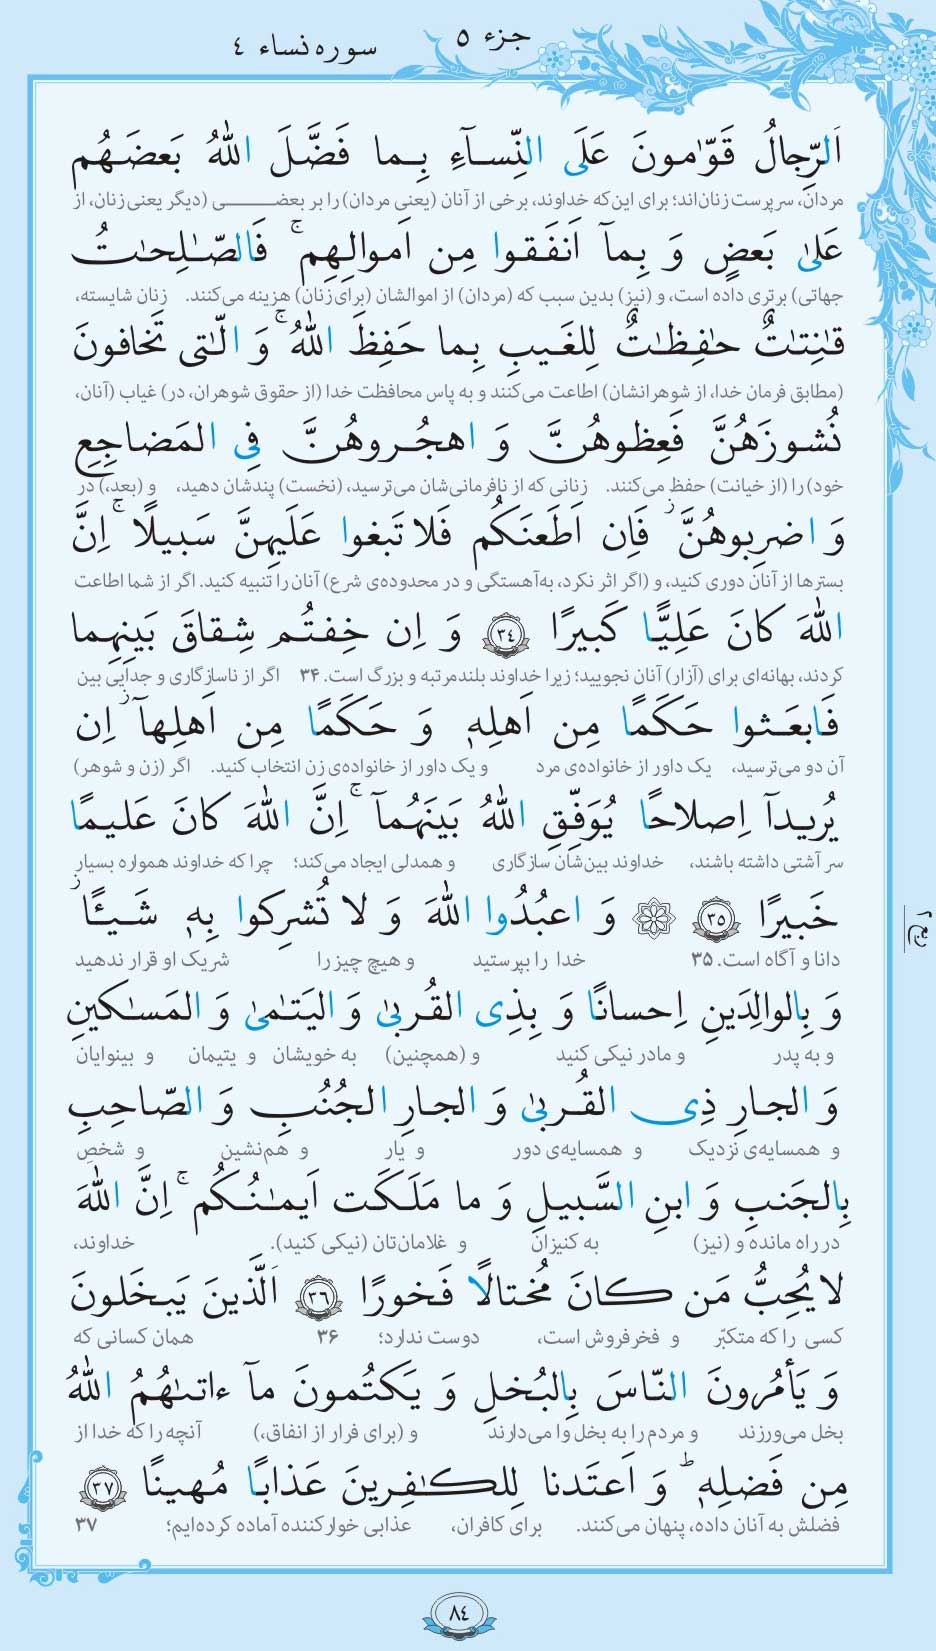 سوره نساء ٤
جزء ٥
اَلرِّجالُ قَوّٰمونَ عَلَى النِّسآءِ بِما فَضَّلَ اللّٰهُ بَعضَهُم
مردان، سرپرست زنان‌اند؛ برای این‌که خداوند، برخی از آنان (یعنی مردان) را بر بعضـــی (دیگر یعنی زنان، از
عَلىٰ بَعضٍ وَ بِمآ اَنفَقوا مِن اَموالِهِم ۚ فَالصّٰلِحٰتُ
جهاتی) برتری داده است، و (نیز) بدین سبب که (مردان) از اموالشان (برای زنان) هزینه می‌کنند. زنان شایسته،
قٰنِتٰتٌ حٰفِظٰتٌ لِلغَيبِ بِما حَفِظَ اللّٰهُ ۚ وَ الّٰتى تَخافونَ
(مطابق فرمان خدا، از شوهرانشان) اطاعت می‌کنند و به پاس محافظت خدا (از حقوق شوهران، در) غیاب (آنان،
نُشوزَهُنَّ فَعِظوهُنَّ وَ اهجُروهُنَّ فِى المَضاجِعِ
خود) را (از خیانت) حفظ می‌کنند. زنانی که از نافرمانی‌شان می‌ترسید، (نخست) پندشان دهید، و (بعد،) در
وَ اضرِبوهُنَّ ز فَاِن اَطَعنَكُم فَلا تَبغوا عَلَيهِنَّ سَبيلًا ۚ اِنَّ
بسترها از آنان دوری کنید، و (اگر اثر نکرد، به‌آهستگی و در محدوده‌ی شرع) آنان را تنبیه کنید. اگر از شما اطاعت
اللّٰهَ كانَ عَلِيًّا كَبيرًا ٣٤ وَ اِن خِفتُم شِقاقَ بَينِهِما
کردند، بهانه‌ای برای (آزار) آنان نجویید؛ زیرا خداوند بلندمرتبه و بزرگ است. ۳۴ اگر از ناسازگاری و جدایی بین
فَابعَثوا حَكَمًا مِن اَهلِهٖ وَ حَكَمًا مِن اَهلِهآ ز اِن
آن دو می‌ترسید، یک داور از خانواده‌ی مرد و یک داور از خانواده‌ی زن انتخاب کنید. اگر (زن و شوهر)
يُريدآ اِصلاحًا يُوَفِّقِ اللّٰهُ بَينَهُمآ ۚ اِنَّ اللّٰهَ كانَ عَليمًا
سر آشتی داشته باشند، خداوند بین‌شان سازگاری و همدلی ایجاد می‌کند؛ چرا که خداوند همواره بسیار
خَبيرًا ٣٥ وَ اعبُدُوا اللّٰهَ وَ لا تُشرِكوا بِهٖ شَيـًٔا ز
دانا و آگاه است. ۳۵ خدا را بپرستید و هیچ چیز را شریک او قرار ندهید
وَ بِالوالِدَينِ اِحسانًا وَ بِذِى القُربىٰ وَ اليَتٰمىٰ وَ المَسٰكينِ
و به پدر و مادر نیکی کنید و (همچنین) به خویشان و یتیمان و بینوایان
وَ الجارِ ذِى القُربىٰ وَ الجارِ الجُنُبِ وَ الصّاحِبِ
و همسایه‌ی نزدیک و همسایه‌ی دور و یار و هم‌نشین و شخصِ
بِالجَنبِ وَ ابنِ السَّبيلِ وَ ما مَلَكَت اَيمٰنُكُم ۚ اِنَّ اللّٰهَ
در راه مانده و (نیز) به کنیزان و غلامان‌تان (نیکی کنید). خداوند،
لا يُحِبُّ مَن كانَ مُختالًا فَخورًا ٣٦ اَلَّذينَ يَبخَلونَ
کسی را که متکبّر و فخرفروش است، دوست ندارد؛ ۳۶ همان کسانی که
وَ يَأمُرونَ النّاسَ بِالبُخلِ وَ يَكتُمونَ مآ ءاتىٰهُمُ اللّٰهُ
بخل می‌ورزند و مردم را به بخل وا می‌دارند و (برای فرار از انفاق،) آنچه را که خدا از
مِن فَضلِهٖ ؕ وَ اَعتَدنا لِلكٰفِرينَ عَذابًا مُهينًا ٣٧
فضلش به آنان داده، پنهان می‌کنند. برای کافران، عذابی خوارکننده آماده کرده‌ایم؛ ۳۷
٨٤